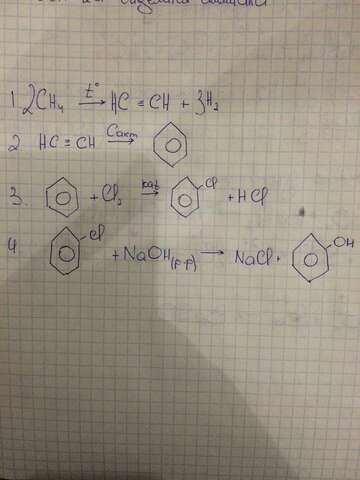 1. 2CH₄ —t°→ HC≡CH + 3H₂
2. HC≡CH —Cакт→
3. + Cl₂ —кат→ Cl + HCl
4. Cl + NaOH(р-р) → NaCl + OH